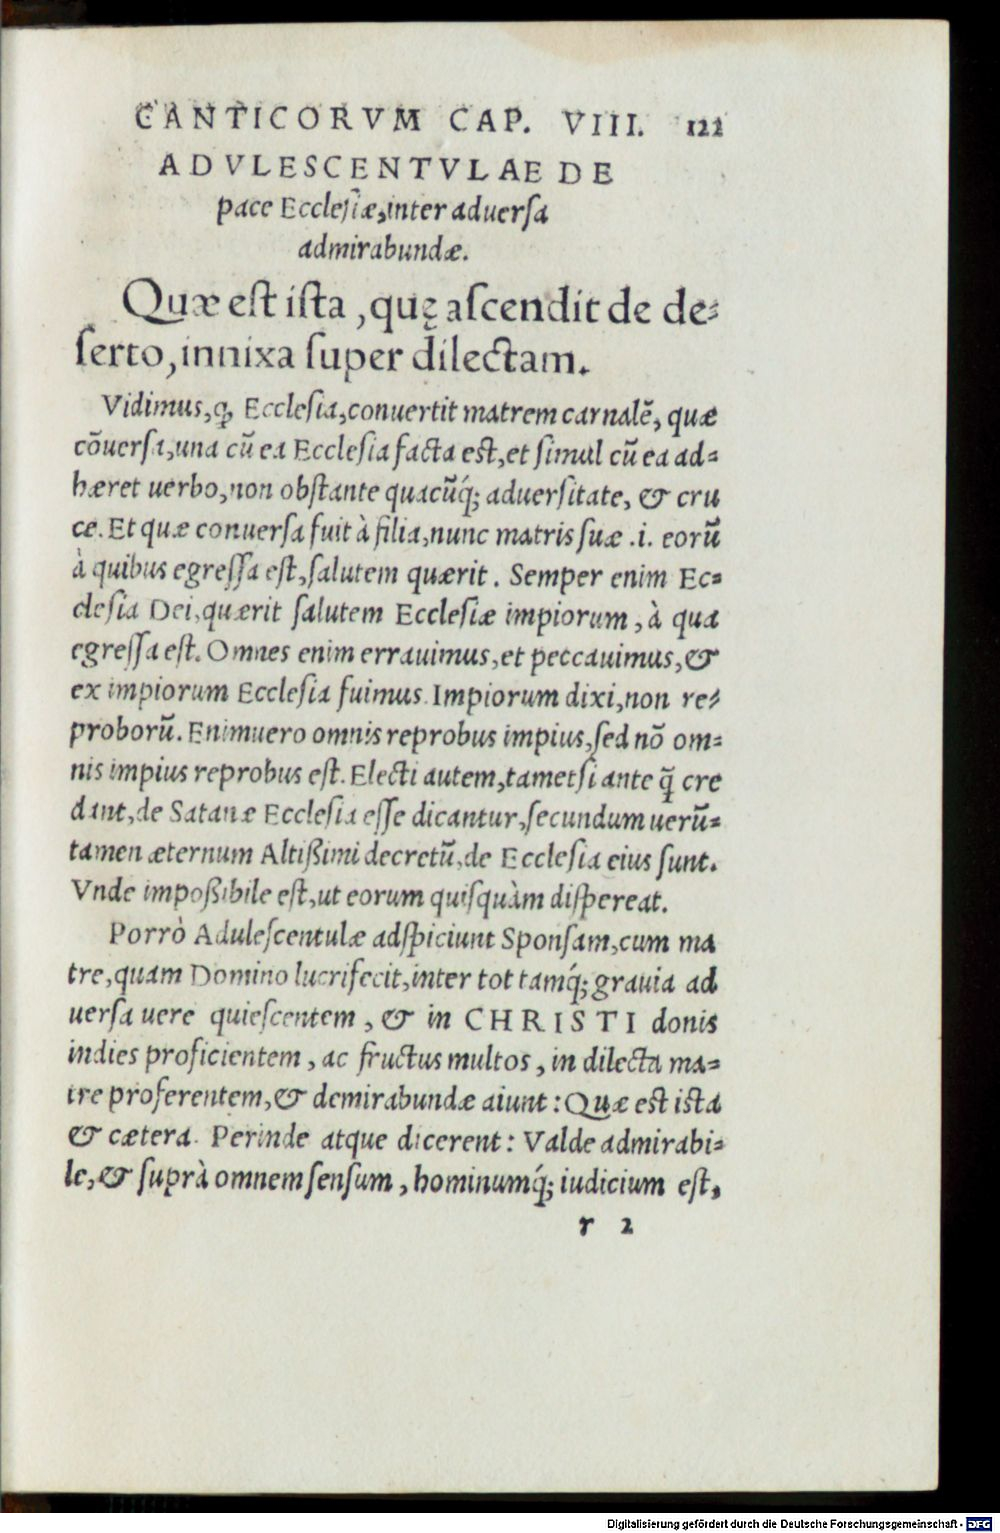 CANTICORVM CAP. VIII. 122
ADVLESCENTVLAE DE
pace Ecclesiæ, inter aduersa
admirabundæ.
Quæ est ista, quę ascendit de de-
serto, innixa super dilectam.
Vidimus, ꝙ Ecclesia, conuertit matrem carnalẽ, quæ
cõuersa, una cũ ea Ecclesia facta est, et simul cũ ea ad-
hæret uerbo, non obstante quacũq́; aduersitate, & cru
ce. Et quæ conuersa fuit à filia, nunc matris suæ .i. eorũ
à quibus egressa est, salutem quærit. Semper enim Ec-
clesia Dei, quærit salutem Ecclesiæ impiorum, à qua
egressa est. Omnes enim errauimus, et peccauimus, &
ex impiorum Ecclesia fuimus. Impiorum dixi, non re-
proborũ. Enimuero omnis reprobus impius, sed nõ om-
nis impius reprobus est. Electi autem, tametsi ante q̃ cre
dant, de Satanæ Ecclesia esse dicantur, secundum uerũ-
tamen æternum Altißimi decretũ, de Ecclesia eius sunt.
Vnde impoßibile est, ut eorum quisquàm dispereat.
Porrò Adulescentulæ adspiciunt Sponsam, cum ma
tre, quam Domino lucrifecit, inter tot tamq́; grauia ad
uersa uere quiescentem, & in CHRISTI donis
indies proficientem, ac fructus multos, in dilecta ma-
tre proferentem, & demirabundæ aiunt: Quæ est ista
& cætera. Perinde atque dicerent: Valde admirabi-
le, & suprà omnem sensum, hominumq́; iudicium est,
r 2
Digitalisierung gefördert durch die Deutsche Forschungsgemeinschaft - DFG